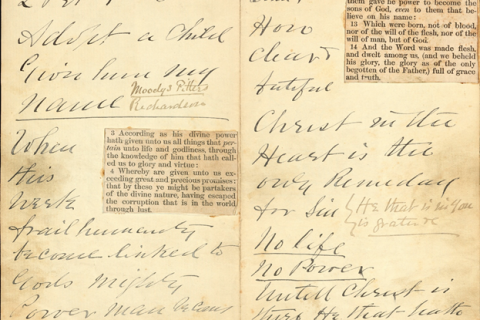 Adopt a Child
Given him my
Name
Moody's
Richardson
3 According as his divine power
hath given unto us all things that per-
tain unto life and godliness, through
the knowledge of him that hath call-
ed us to glory and virtue:
4 Whereby are given unto us ex-
ceeding great and precious promises:
that by these ye might be partakers
of the divine nature, having escaped
the corruption that is in the world
through lust.
When
this
weak
frail humanity
become linked to
Gods mighty
Power man
them gave he power to become the
sons of God, even to them that be-
lieve on his name:
13 Which were born, not of blood,
nor of the will of the flesh, nor of the
will of man, but of God.
14 And the Word was made flesh,
and dwelt among us, (and we beheld
his glory, the glory as of the only
begotten of the Father,) full of grace
and truth.
How
Christ in the
Heart is the
only Remeday
for Sin
He that is in you
is
No life
No Power
Untill Christ is
He that hath